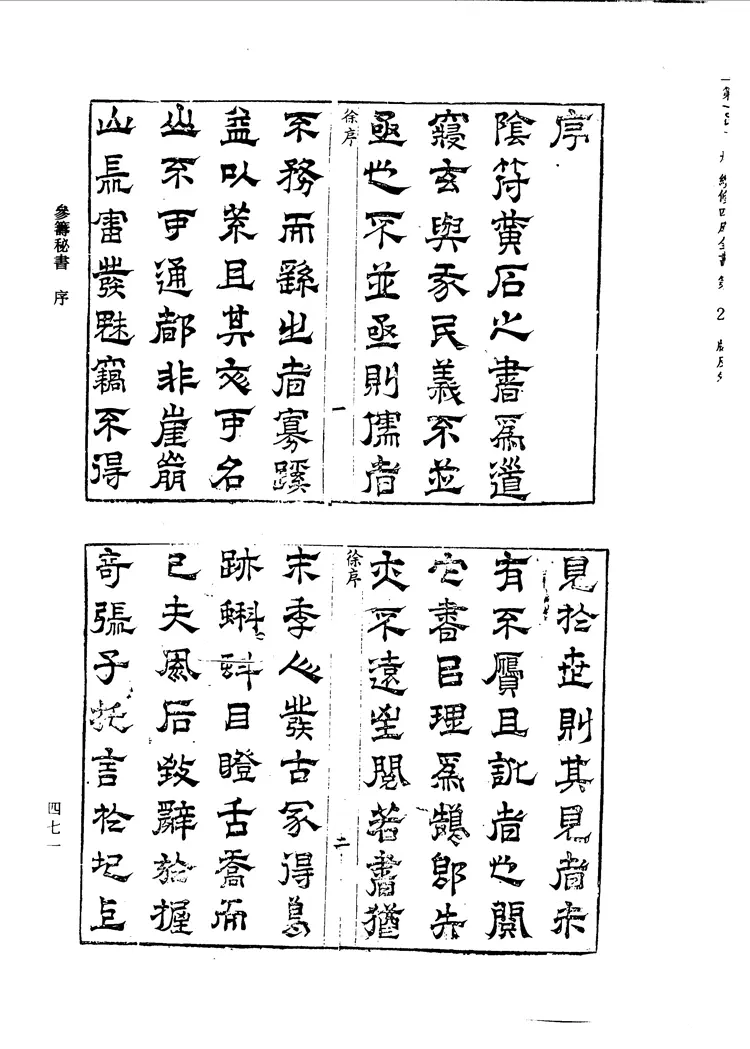 序
陰符黃石之書爲道
玄與民義不並
亟也不並亟則儒者
徐序
一
不務而繇出者寡蹊
益以荒且其文可名
山不可通都非崖崩
山雷發魅竊不得
參籌秘書 序
見於世則其見者未
有不贗且訛者也閱
它書㠯理爲鵠卽失
不遠閱若書猶
徐序
二
末季人發古冢得鳥
跡蝌蚪目瞪舌喬而
已夫風后致辭於握
奇張子托言於圯上
四七一